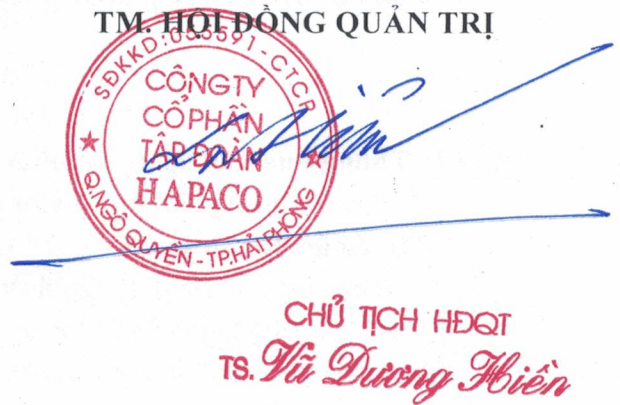 TM. HỘI ĐỒNG QUẢN TRỊ
SĐKKD:055591-CTCP
CÔNG TY
CỔ PHẦN
TẬP ĐOÀN
HAPACO
Q.NGÔ QUYỀN - TP.HẢI PHÒNG
CHỦ TỊCH HĐQT
TS. Vũ Dương Hiền